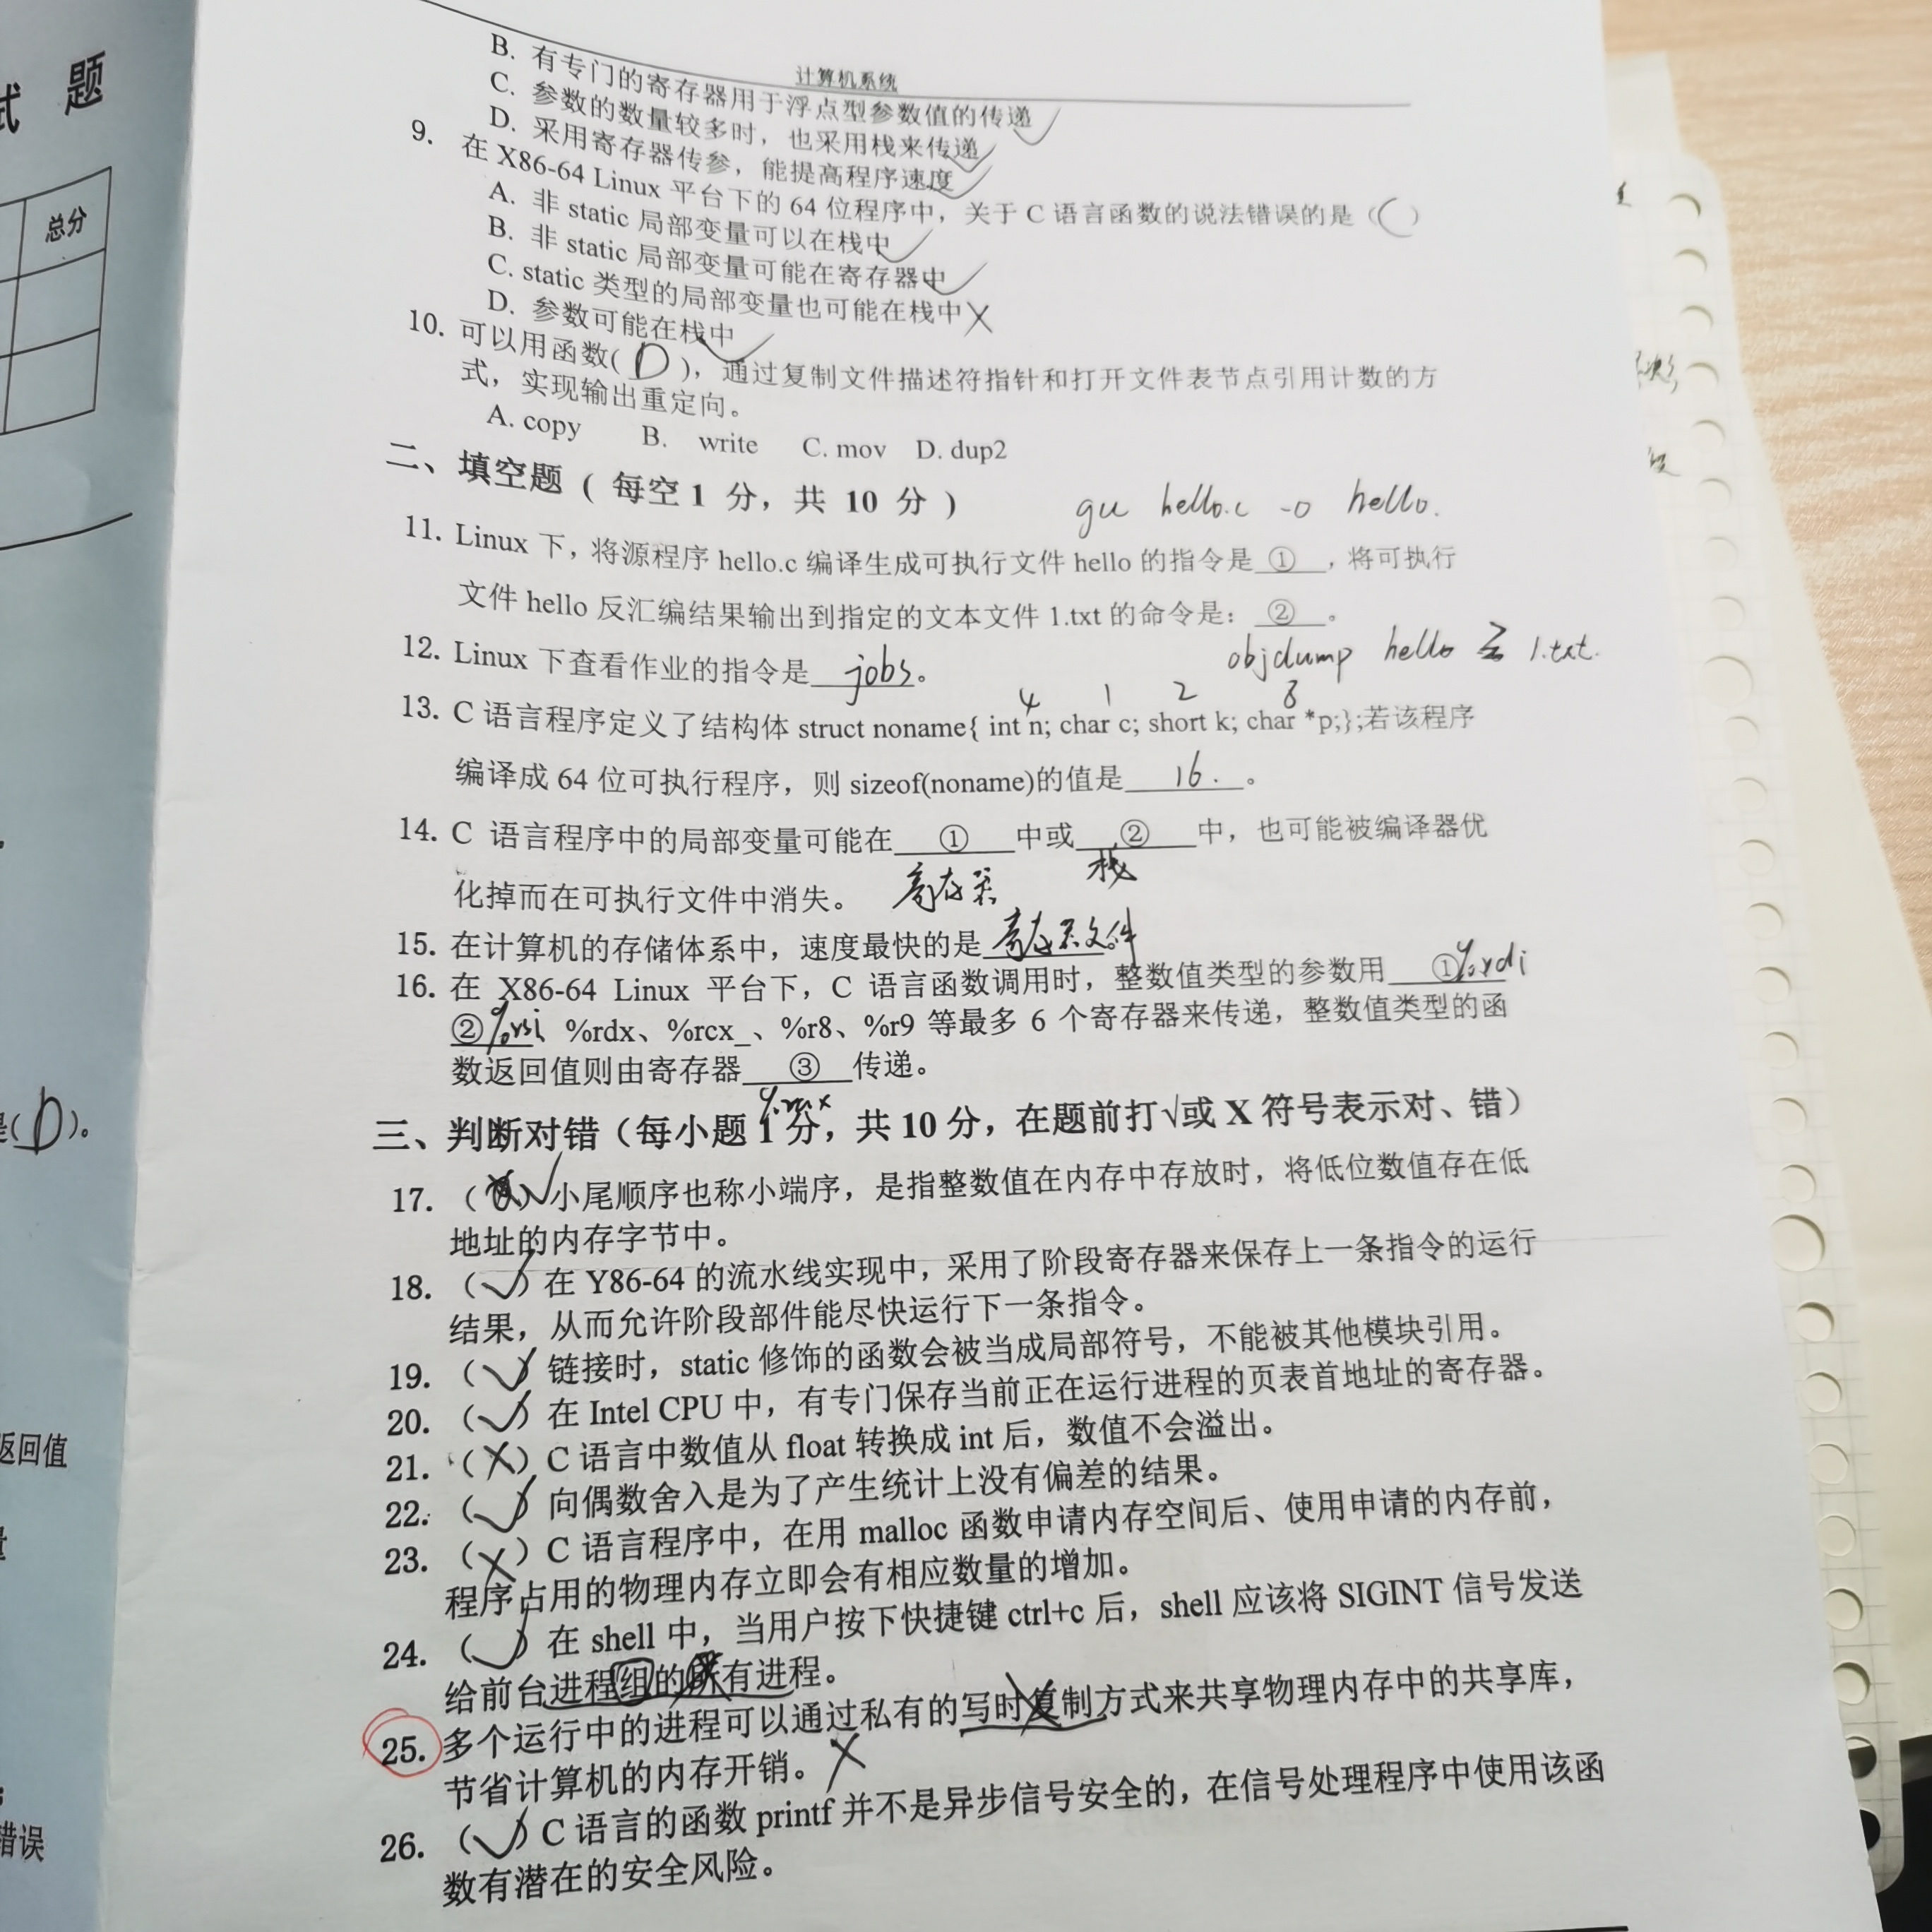 试 题
总分
(D)。
返回值
错误
计算机系统
B. 有专门的寄存器用于浮点型参数值的传递 ✓
C. 参数的数量较多时，也采用栈来传递 ✓
D. 采用寄存器传参，能提高程序速度 ✓
9. 在 X86-64 Linux 平台下的 64 位程序中，关于 C 语言函数的说法错误的是（C）
A. 非 static 局部变量可以在栈中 ✓
B. 非 static 局部变量可能在寄存器中 ✓
C. static 类型的局部变量也可能在栈中 X
D. 参数可能在栈中 ✓
10. 可以用函数( D )，通过复制文件描述符指针和打开文件表节点引用计数的方
式，实现输出重定向。
A. copy B. write C. mov D. dup2
二、填空题（ 每空 1 分，共 10 分 ）
gcc hello.c -o hello.
11. Linux 下，将源程序 hello.c 编译生成可执行文件 hello 的指令是 ① ，将可执行
文件 hello 反汇编结果输出到指定的文本文件 1.txt 的命令是： ② 。
objdump hello 1.txt.
12. Linux 下查看作业的指令是 jobs 。
4 1 2 8
13. C 语言程序定义了结构体 struct noname{ int n; char c; short k; char *p;};若该程序
编译成 64 位可执行程序，则 sizeof(noname)的值是 16. 。
14. C 语言程序中的局部变量可能在 ① 中或 ② 中，也可能被编译器优
化掉而在可执行文件中消失。 寄存器 栈
15. 在计算机的存储体系中，速度最快的是 寄存器文件 。
16. 在 X86-64 Linux 平台下，C 语言函数调用时，整数值类型的参数用 ① %rdi
② %rsi、%rdx、%rcx_、%r8、%r9 等最多 6 个寄存器来传递，整数值类型的函
数返回值则由寄存器 ③ 传递。
%rax
三、判断对错（每小题 1 分，共 10 分，在题前打√或 X 符号表示对、错）
17. （ ）✓小尾顺序也称小端序，是指整数值在内存中存放时，将低位数值存在低
地址的内存字节中。
18. （✓）在 Y86-64 的流水线实现中，采用了阶段寄存器来保存上一条指令的运行
结果，从而允许阶段部件能尽快运行下一条指令。
19. （✓）链接时，static 修饰的函数会被当成局部符号，不能被其他模块引用。
20. （✓）在 Intel CPU 中，有专门保存当前正在运行进程的页表首地址的寄存器。
21. （X）C 语言中数值从 float 转换成 int 后，数值不会溢出。
22. （✓）向偶数舍入是为了产生统计上没有偏差的结果。
23. （X）C 语言程序中，在用 malloc 函数申请内存空间后、使用申请的内存前，
程序占用的物理内存立即会有相应数量的增加。
24. （✓）在 shell 中，当用户按下快捷键 ctrl+c 后，shell 应该将 SIGINT 信号发送
给前台进程组的所有进程。
25. 多个运行中的进程可以通过私有的写时复制方式来共享物理内存中的共享库，
节省计算机的内存开销。 X
26. （✓）C 语言的函数 printf 并不是异步信号安全的，在信号处理程序中使用该函
数有潜在的安全风险。